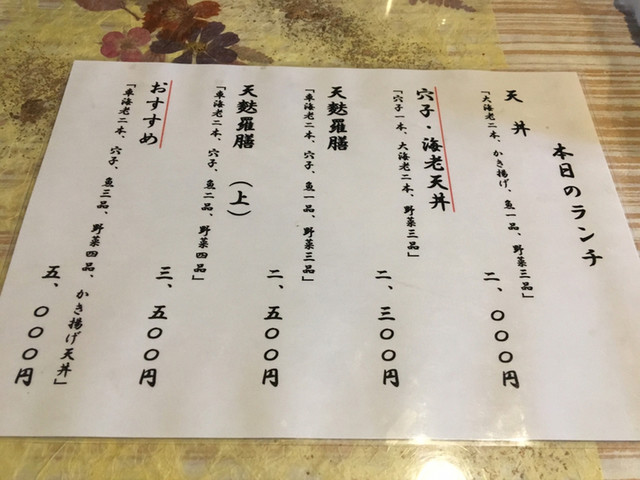 本日のランチ
天丼
「大海老二本、かき揚げ、魚一品、野菜三品」
二、〇〇〇円
穴子・海老天丼
「穴子一本、大海老二本、野菜三品」
二、三〇〇円
天麩羅膳
「車海老二本、穴子、魚一品、野菜三品」
二、五〇〇円
天麩羅膳（上）
「車海老二本、穴子、魚二品、野菜四品」
三、五〇〇円
おすすめ
「車海老二本、穴子、魚三品、野菜四品、かき揚げ天丼」
五、〇〇〇円